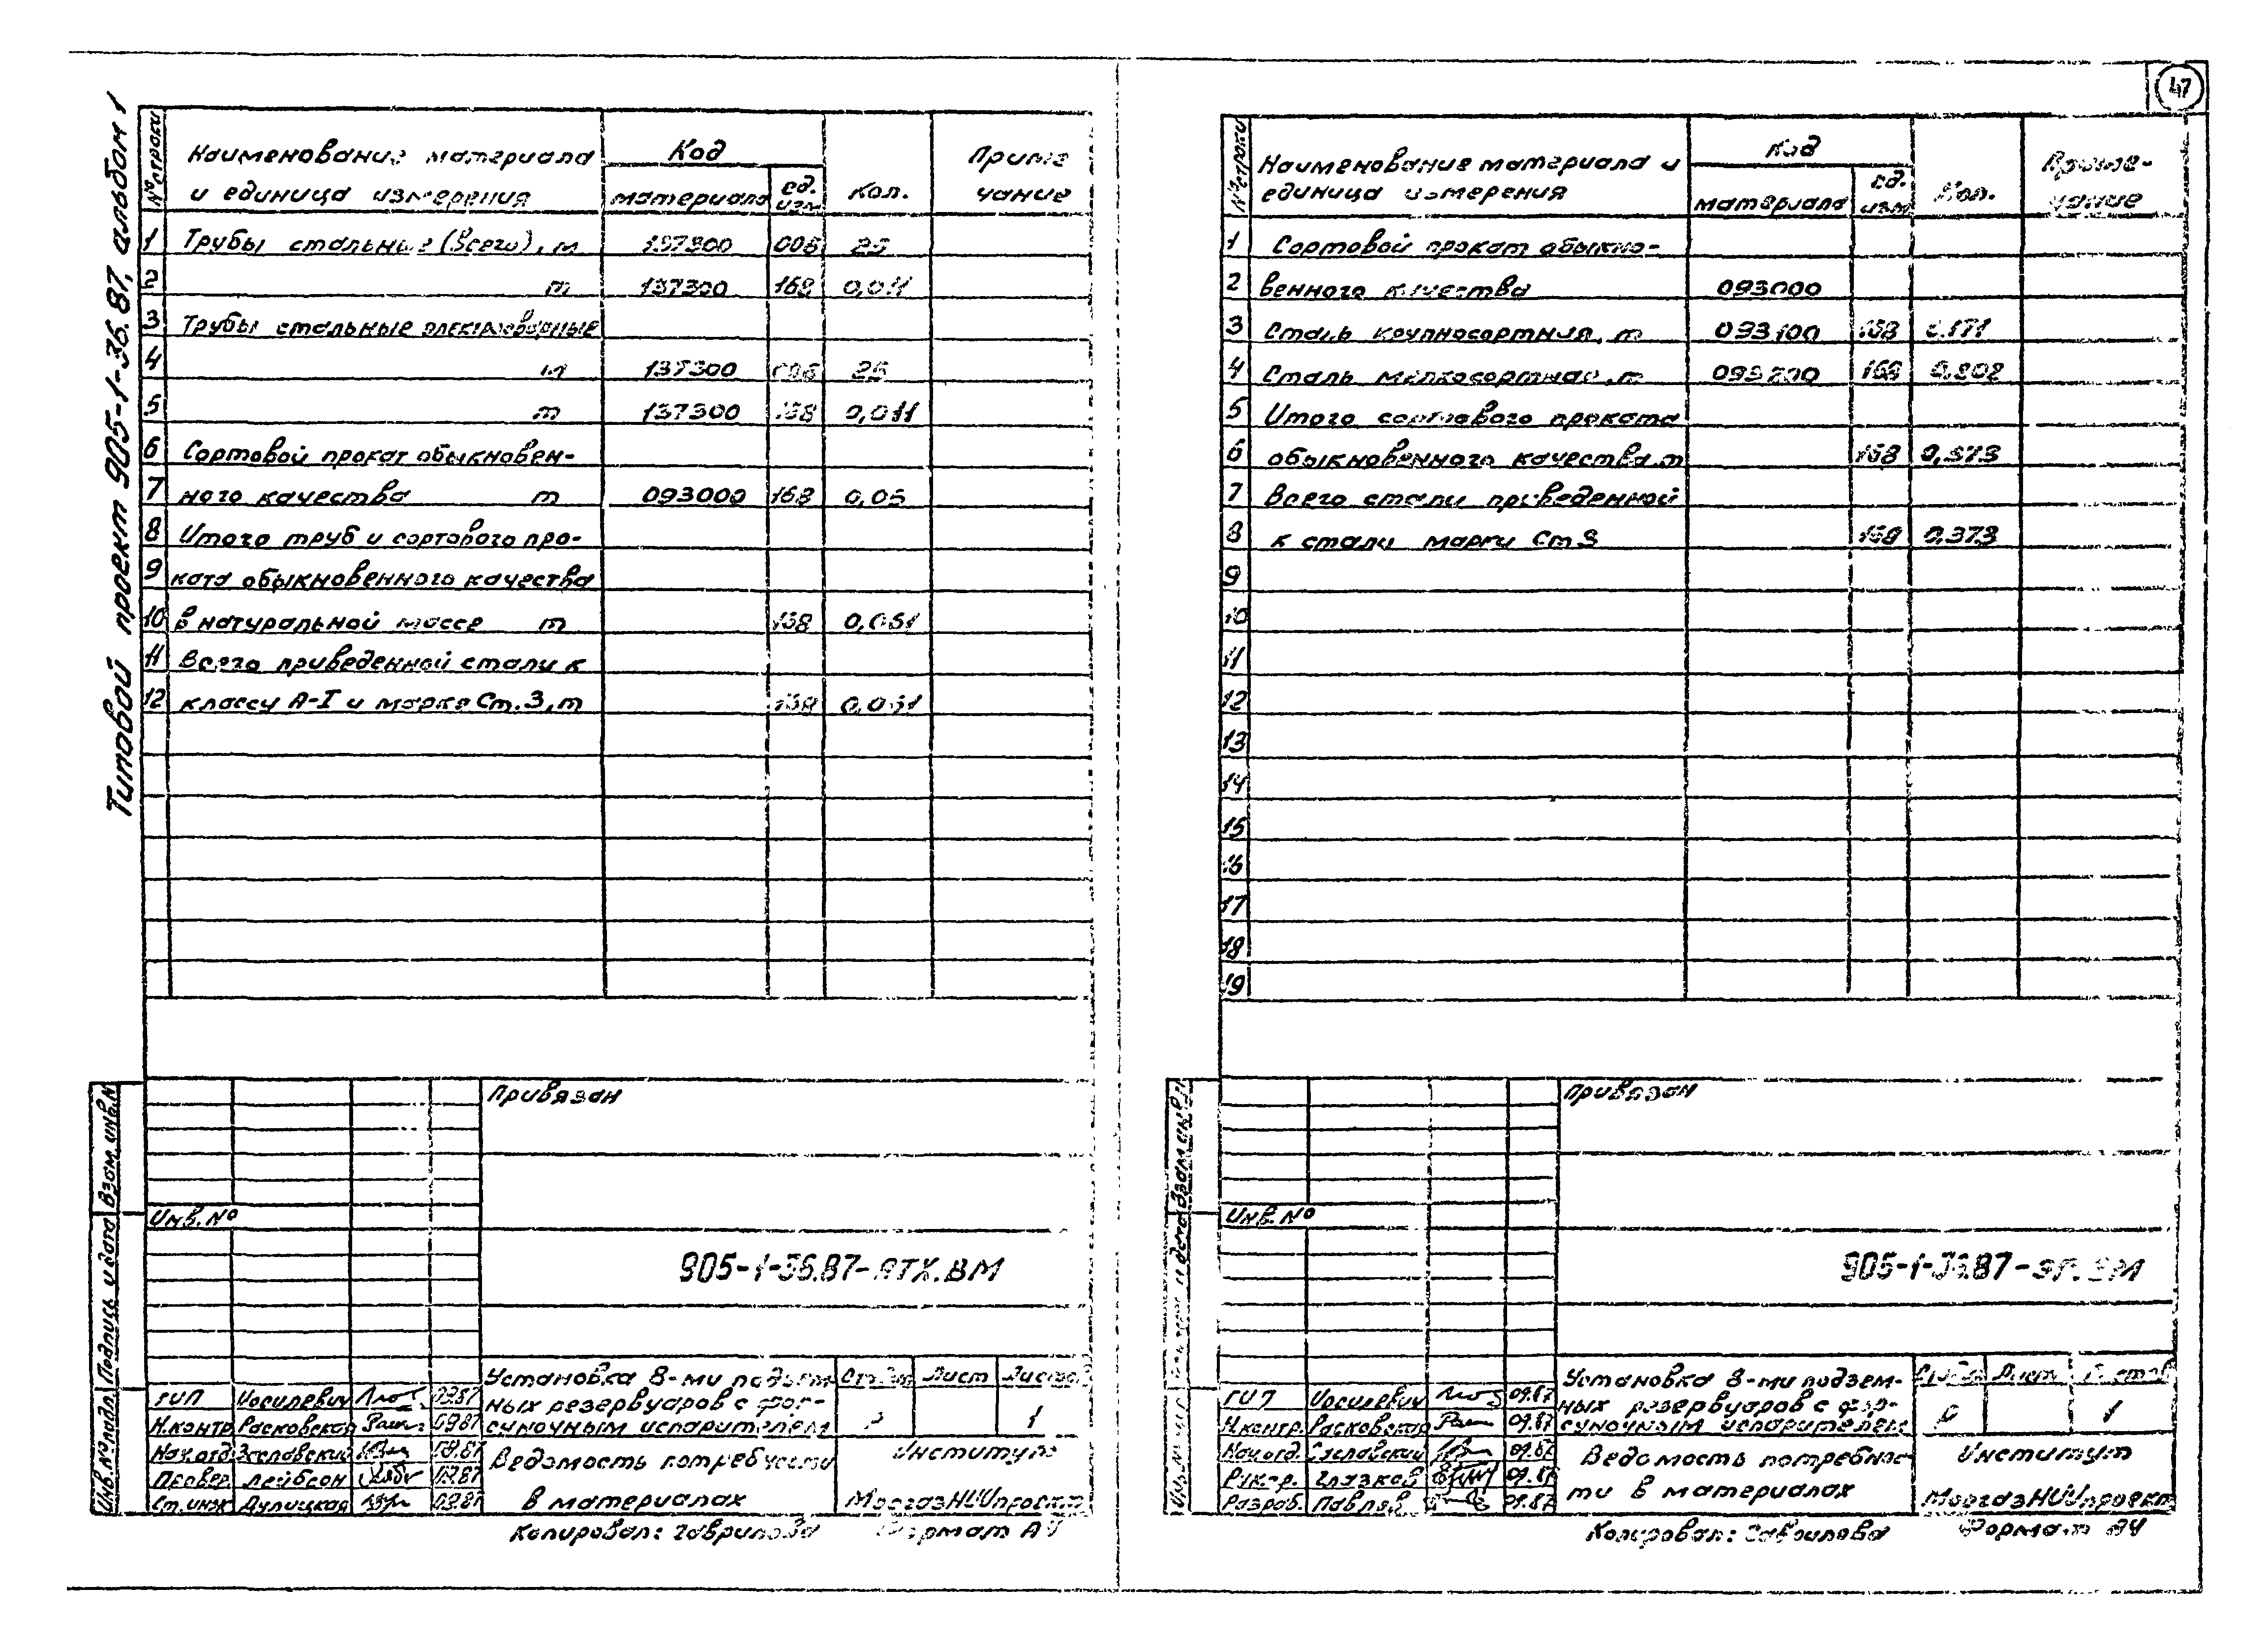 47
Типовой проект 905-1-36.87, альбом 1
№ строки
Наименование материала
и единица измерения
Код
материала
ед. изм
Кол.
Приме
чание
1 Трубы стальные (всего), м 137300 006 25
2 т 137300 168 0,011
3 Трубы стальные электросварные
4 м 137300 006 25
5 т 137300 168 0,011
6 Сортовой прокат обыкновен-
7 ного качества т 093000 168 0,05
8 Итого труб и сортового про-
9 ката обыкновенного качества
10 в натуральной массе т 168 0,061
11 Всего приведенной стали к
12 классу А-I и марке Ст.3, т 168 0,061
Привязан
Инв. №
905-1-36.87-АТХ.ВМ
ГИП Иосилевич 09.87
Н.контр Расковская 09.87
Нач.отд. Заславский 09.87
Провер. Лейбсон 09.87
Ст.инж Дулицкая 09.87
Установка 8-ми подзем
ных резервуаров с фор-
суночным испарителем
Ведомость потребности
в материалах
Стадия Лист Листов
Р 1
Институт
МосгазНИИпроект
Копировал: Гаврилова Формат А4
Взам. инв. №
Подпись и дата
Инв. № подл.
№ строки
Наименование материала и
единица измерения
Код
материала
ед. изм
Кол.
Приме-
чание
1 Сортовой прокат обыкно-
2 венного качества 093000
3 Сталь крупносортная, т 093100 168 0.171
4 Сталь мелкосортная, т 093200 168 0.202
5 Итого сортового проката
6 обыкновенного качества т 168 0,373
7 Всего стали приведенной
8 к стали марки Ст3 168 0.373
9
10
11
12
13
14
15
16
17
18
19
Привязан
Инв. №
905-1-36.87-
ГИП Иосилевич 09.87
Н.контр. Расковская 09.87
Нач.отд. Заславский 09.87
Рук.гр. Глазков 09.87
Разраб. Павлов 09.87
Установка 8-ми подзем-
ных резервуаров с фор-
суночным испарителем
Ведомость потребнос-
ти в материалах
Стадия Лист Листов
Р 1
Институт
МосгазНИИпроект
Копировал: Гаврилова Формат А4